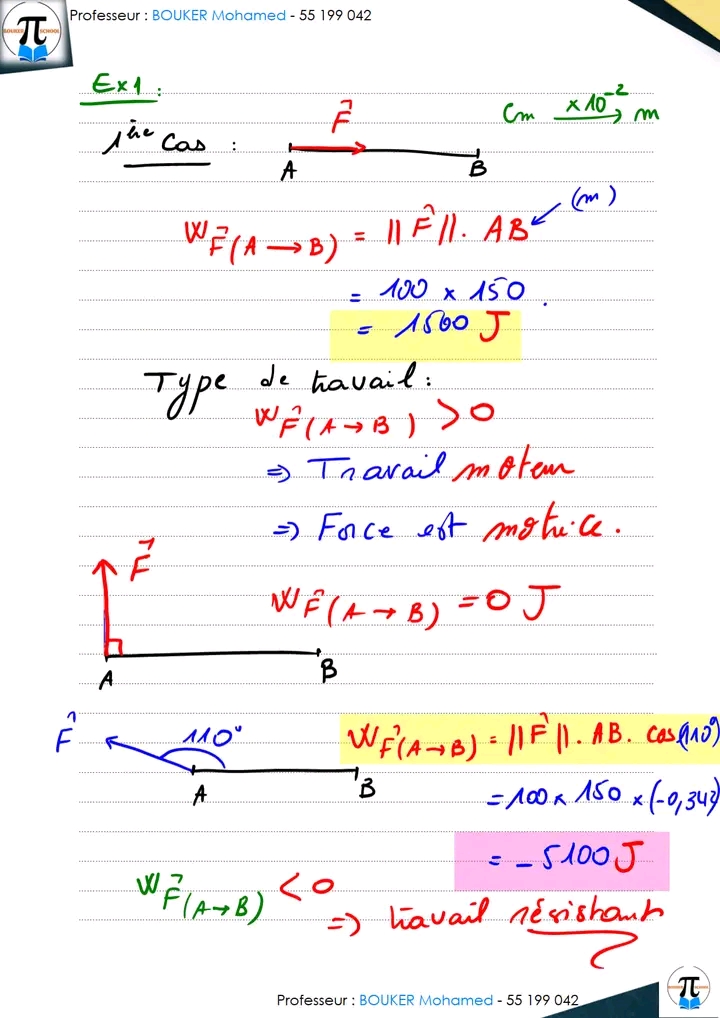 Professeur : BOUKER Mohamed - 55 199 042
π
BOUKER SCHOOL
Ex1 :
Cm ×10⁻² → m
1ère Cas :
F⃗
A B
W F⃗(A → B) = ||F⃗||. AB (m)
= 100 × 150 .
= 1500 J
Type de travail :
W F⃗(A → B) > 0
=> Travail moteur
=> Force est motrice.
F⃗
W F⃗(A → B) = 0 J
A B
F⃗ 110° W F⃗(A → B) = ||F⃗||. AB. cos(110°)
A B
= 100 × 150 × (-0,342)
= - 5100 J
W F⃗(A → B) < 0
=> travail résistant
Professeur : BOUKER Mohamed - 55 199 042
π